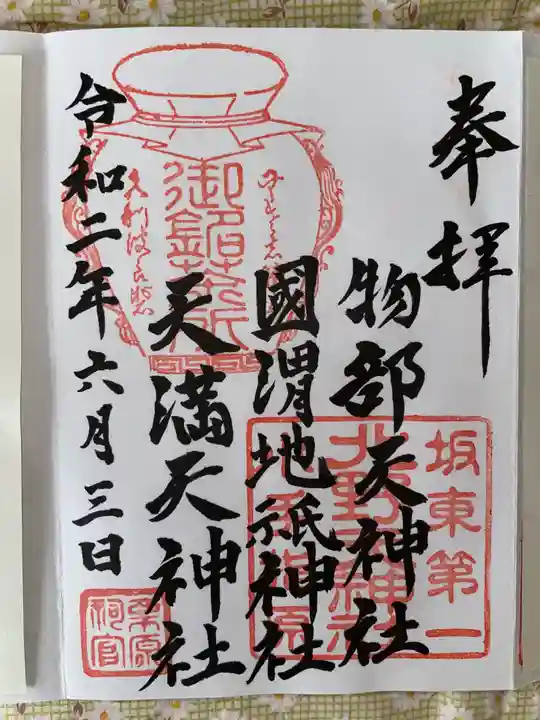 奉拝
物部天神社
國渭地祇神社
天満天神社
令和二年六月三日
坂東第一
北野天神
栗原
祠官